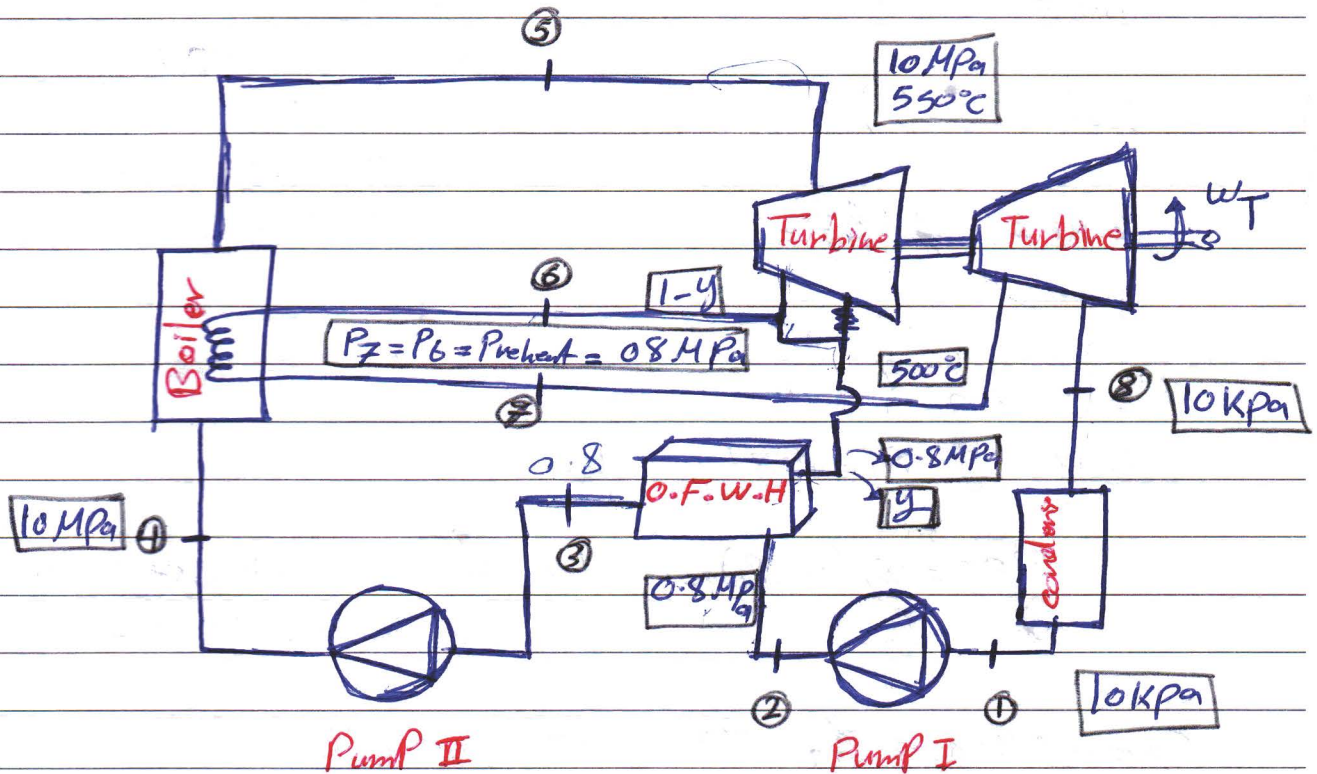 ⑤
10 MPa
550°C
Turbine
Turbine
WT
Boiler
⑥
1-y
P7 = P6 = Preheat = 0.8 MPa
500°C
⑦
⑧
10 kpa
0.8
0.8 MPa
O.F.W.H
y
10 MPa
④
③
0.8 MPa
②
①
10 kpa
Pump II
Pump I